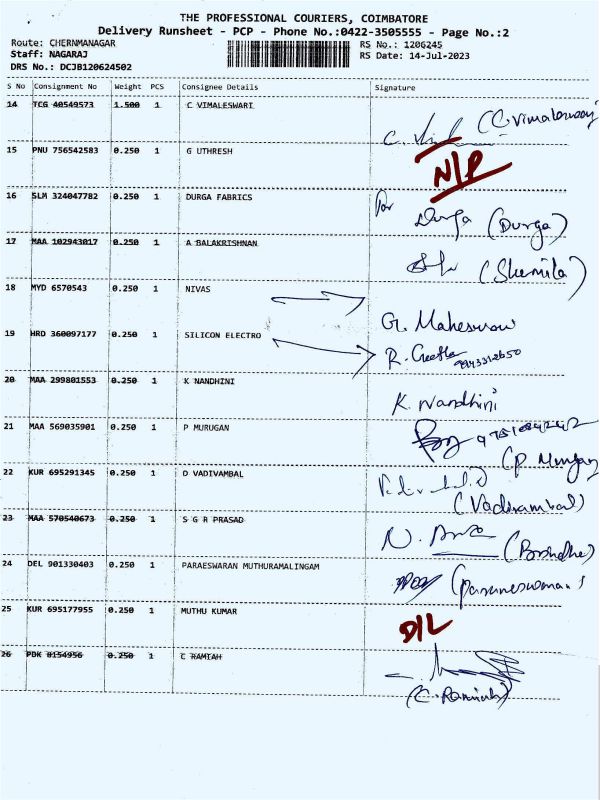 THE PROFESSIONAL COURIERS, COIMBATORE
Delivery Runsheet - PCP - Phone No.:0422-3505555 - Page No.:2
Route: CHERNMANAGAR RS No.: 1206245
Staff: NAGARAJ RS Date: 14-Jul-2023
DRS No.: DCJB120624502
S No Consignment No Weight PCS Consignee Details Signature
14 TCG 40549573 1.500 1 C VIMALESWARI
C. (C. Vimaleswary
15 PNU 756542583 0.250 1 G UTHRESH N/P
16 SLM 324047782 0.250 1 DURGA FABRICS For
Durga (Durga)
17 MAA 102943017 0.250 1 A BALAKRISHNAN
(Shemila)
18 MYD 6570543 0.250 1 NIVAS
G. Maheswari
19 HRD 360097177 0.250 1 SILICON ELECTRO R. Geetha
9943312650
20 MAA 299801553 0.250 1 K NANDHINI K. Nandhini
21 MAA 569035901 0.250 1 P MURUGAN
(P Murugan
22 KUR 695291345 0.250 1 D VADIVAMBAL
(Vadivambal)
23 MAA 570540673 0.250 1 S G R PRASAD N.
24 DEL 901330403 0.250 1 PARAESWARAN MUTHURAMALINGAM
25 KUR 695177955 0.250 1 MUTHU KUMAR D/L
26 PDK 8154956 0.250 1 C RAMIAH
(C. Ramiah)